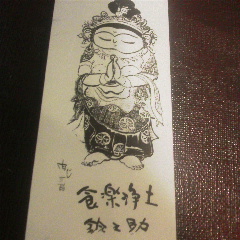 食楽浄土
鈴之助